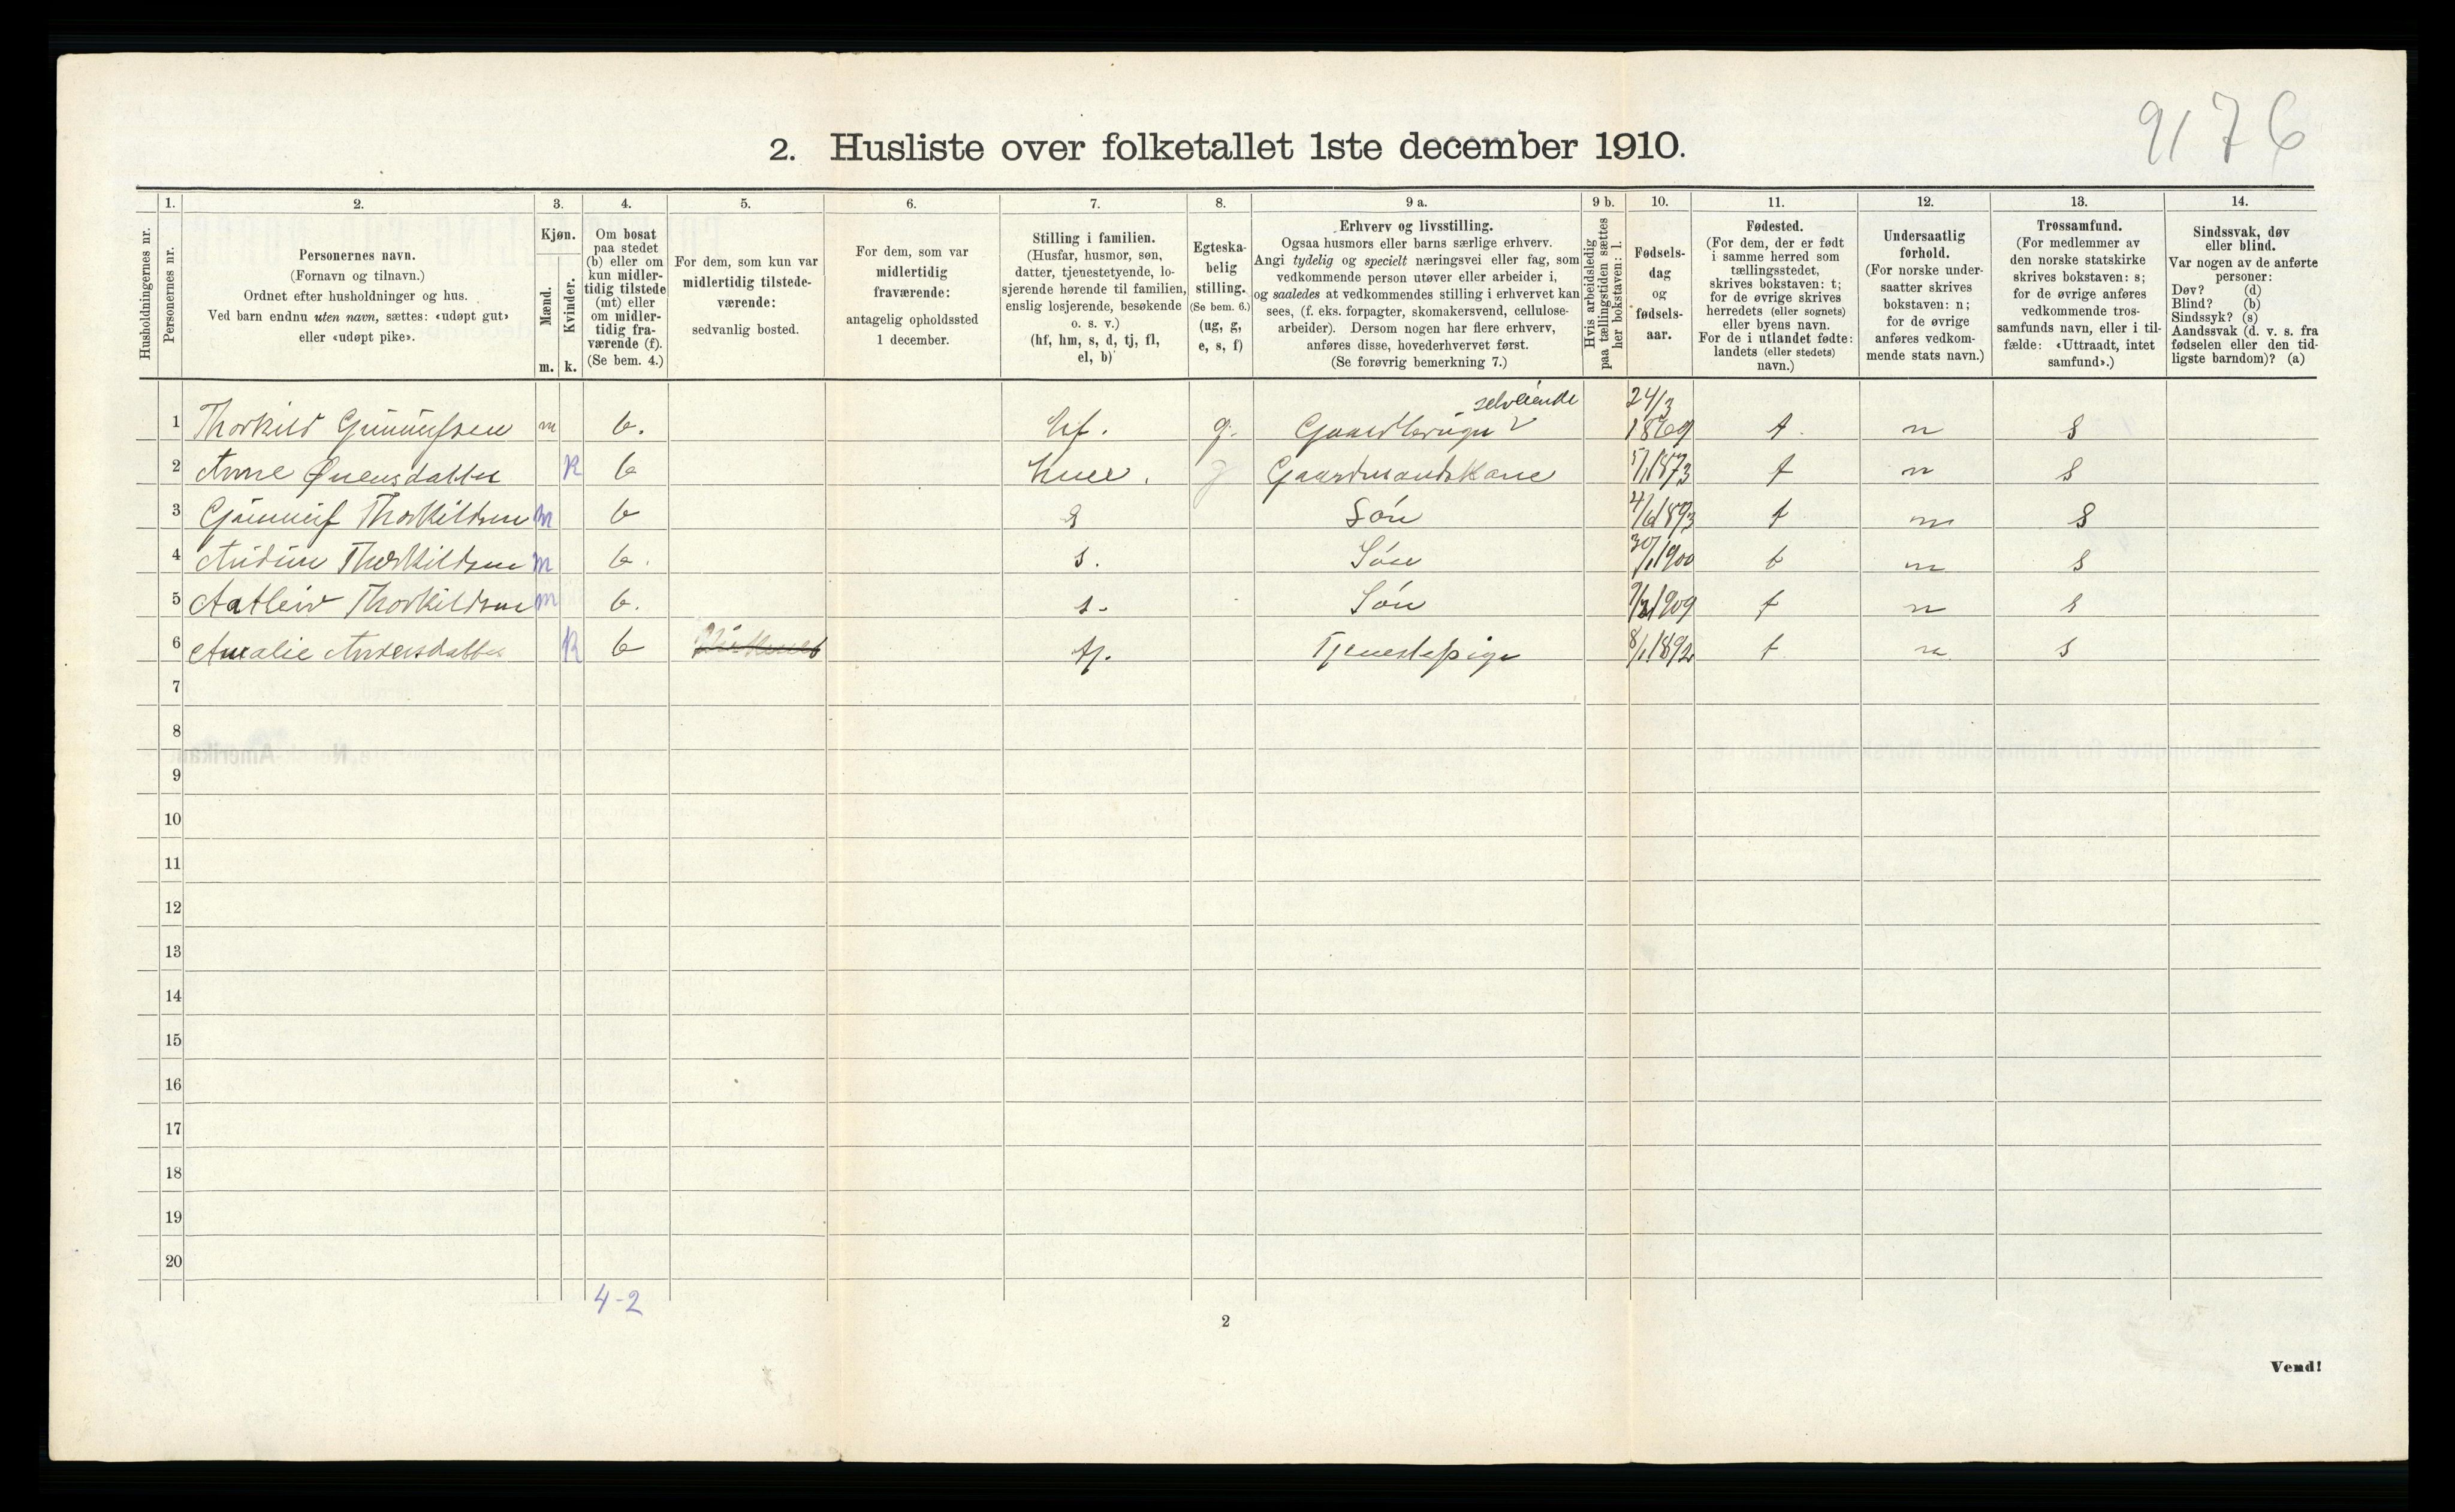 9176
2. Husliste over folketallet 1ste december 1910.
Husholdningernes nr.
1.
Personernes nr.
2.
Personernes navn.
(Fornavn og tilnavn.)
Ordnet efter husholdninger og hus.
Ved barn endnu uten navn, sættes: «udøpt gut»
eller «udøpt pike».
3.
Kjøn.
Mænd.
Kvinder.
m. k.
4.
Om bosat
paa stedet
(b) eller om
kun midler-
tidig tilstede
(mt) eller
om midler-
tidig fra-
værende (f).
(Se bem. 4.)
5.
For dem, som kun var
midlertidig tilstede-
værende:
sedvanlig bosted.
6.
For dem, som var
midlertidig
fraværende:
antagelig opholdssted
1 december.
7.
Stilling i familien.
(Husfar, husmor, søn,
datter, tjenestetyende, lo-
sjerende hørende til familien,
enslig losjerende, besøkende
o. s. v.)
(hf, hm, s, d, tj, fl,
el, b)
8.
Egteska-
belig
stilling.
(Se bem. 6.)
(ug, g,
e, s, f)
9 a.
Erhverv og livsstilling.
Ogsaa husmors eller barns særlige erhverv.
Angi tydelig og specielt næringsvei eller fag, som
vedkommende person utøver eller arbeider i,
og saaledes at vedkommendes stilling i erhvervet kan
sees, (f. eks. forpagter, skomakersvend, cellulose-
arbeider). Dersom nogen har flere erhverv,
anføres disse, hovederhvervet først.
(Se forøvrig bemerkning 7.)
9 b.
Hvis arbeidsledig
paa tællingstiden sættes
her bokstaven: l.
10.
Fødsels-
dag
og
fødsels-
aar.
11.
Fødested.
(For dem, der er født
i samme herred som
tællingsstedet,
skrives bokstaven: t;
for de øvrige skrives
herredets (eller sognets)
eller byens navn.
For de i utlandet fødte:
landets (eller stedets)
navn.)
12.
Undersaatlig
forhold.
(For norske under-
saatter skrives
bokstaven: n;
for de øvrige
anføres vedkom-
mende stats navn.)
13.
Trossamfund.
(For medlemmer av
den norske statskirke
skrives bokstaven: s;
for de øvrige anføres
vedkommende tros-
samfunds navn, eller i til-
fælde: «Uttraadt, intet
samfund».)
14.
Sindssvak, døv
eller blind.
Var nogen av de anførte
personer:
Døv? (d)
Blind? (b)
Sindssyk? (s)
Aandssvak (d. v. s. fra
fødselen eller den tid-
ligste barndom)? (a)
selveiende 24/3
1 Thorkild Gunnufsen m b. hf. g. Gaardbruger 1869 t. n s
2 Anne Øuensdatter k b g Gaardmandskone 5/1 1873 t n s
3 Gunnuf Thorkildsen m b s Søn 4/6 1893 t n s
4 Audun Thorkildsen m b. s. Søn 30/1 1900 t n s
5 Aatleiv Thorkildsen m b. s. Søn 1909 t n s
6 Amalie Andersdatter k b tj. Tjenestepige 8/1 1892 t n s
7
8
9
10
11
12
13
14
15
16
17
18
19
20
4-2
2
Vend!